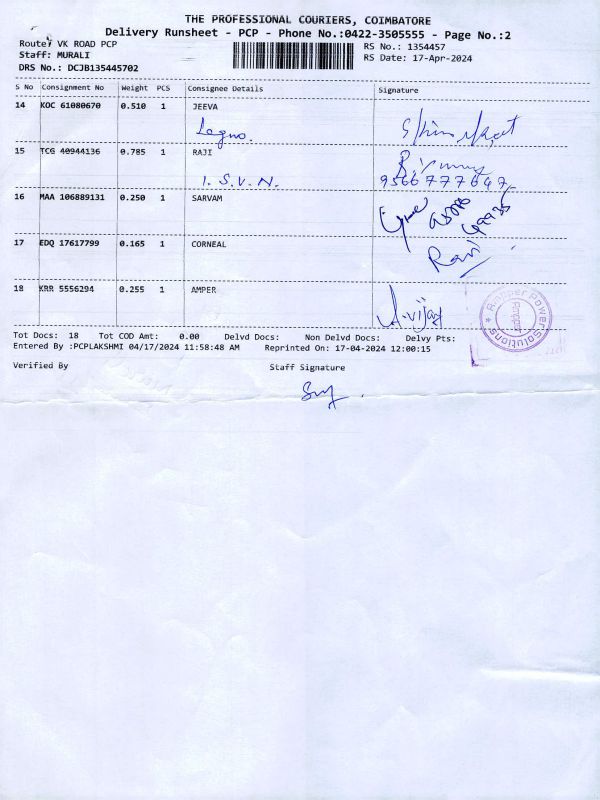 THE PROFESSIONAL COURIERS, COIMBATORE
Delivery Runsheet - PCP - Phone No.:0422-3505555 - Page No.:2
Route: VK ROAD PCP
RS No.: 1354457
Staff: MURALI
RS Date: 17-Apr-2024
DRS No.: DCJB135445702
S No Consignment No Weight PCS Consignee Details Signature
14 KOC 61080670 0.510 1 JEEVA
15 TCG 40944136 0.785 1 RAJI
I. S. V. N. 9566777647
16 MAA 106889131 0.250 1 SARVAM
17 EDQ 17617799 0.165 1 CORNEAL
Ravi
18 KRR 5556294 0.255 1 AMPER
A.vijay
Ampper Power Solutions
Tot Docs: 18 Tot COD Amt: 0.00 Delvd Docs: Non Delvd Docs: Delvy Pts:
Entered By :PCPLAKSHMI 04/17/2024 11:58:48 AM Reprinted On: 17-04-2024 12:00:15
Verified By Staff Signature